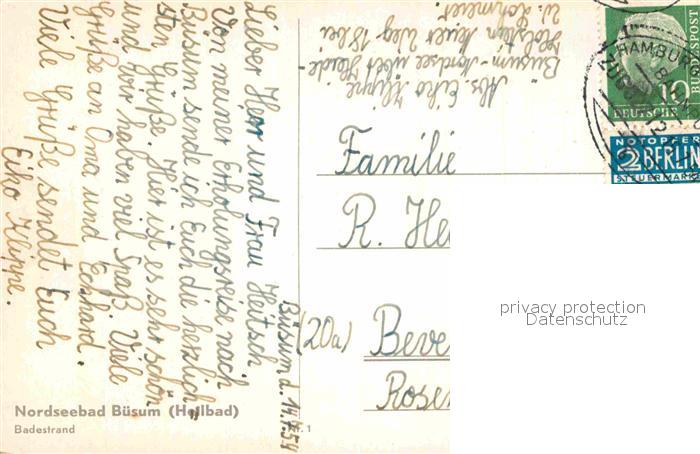 Büsum d. 14.7.54
Lieber Herr und Frau Heitsch
Von meiner Erholungsreise nach
Büsum sende ich Euch die herzlich-
sten Grüße. Hier ist es sehr schön
und wir haben viel Spaß. Viele
Grüße an Oma und Eckhard.
Viele Grüße sendet Euch
Eiko Klippe.
Abs. Eiko Klippe
Büsum-Nordsee über Heide
Holstein Neuer Weg 18 bei
W.
Familie
R. He
(20a) Beve
Rosen
Nordseebad Büsum (Heilbad)
Badestrand
Nr. 1
HAMBURG
10
DEUTSCHE
BUNDESPOST
NOTOPFER
2 BERLIN
STEUERMARKE
privacy protection
Datenschutz